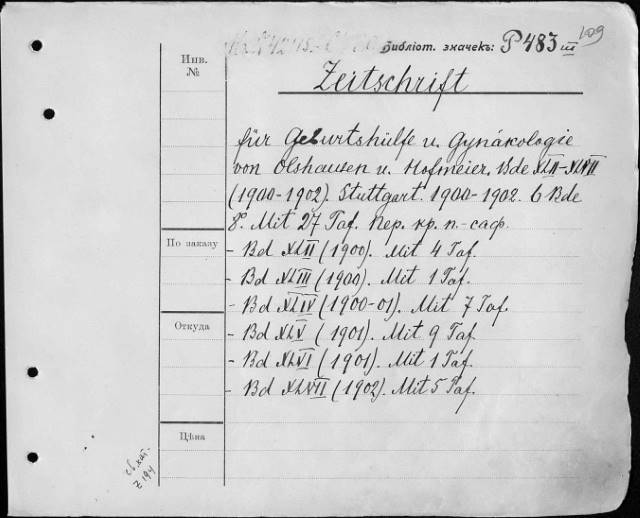 Библіот. значекъ: P 483 III
109
Инв.
№
Zeitschrift
für Geburtshülfe u. Gynäkologie
von Olshausen u. Hofmeier. Bde XLII-XLVII
(1900-1902). Stuttgart. 1900-1902. 6 Bde
8º. Mit 27 Taf. Пер. кр. п.-саф.
По заказу
- Bd XLII (1900). Mit 4 Taf.
- Bd XLIII (1900). Mit 1 Taf.
- Bd XLIV (1900-01). Mit 7 Taf.
Откуда
- Bd XLV (1901). Mit 9 Taf.
- Bd XLVI (1901). Mit 1 Taf.
- Bd XLVII (1902). Mit 5 Taf.
Цѣна
кат.
Z 194